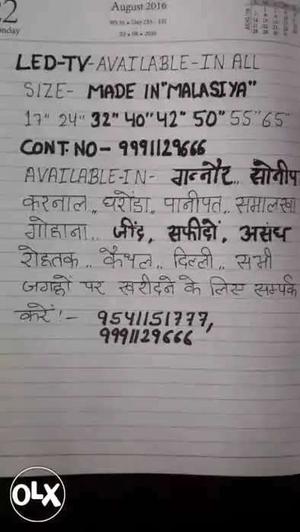 August 2016
LED-TV-AVAILABLE-IN ALL
SIZE- MADE IN "MALASIYA"
17" 24" 32" 40" 42" 50" 55" 65"
CONT.NO- 9991129666
AVAILABLE-IN- गन्नौर.. सोनीप
करनाल.. घरोंडा.. पानीपत.. समालखा
गोहाना.. जींद, सफीदों, असंध
रोहतक.. कैथल.. दिल्ली.. सभी
जगहों पर खरीदने के लिए सम्पर्क
करें!- 9541151777,
9991129666
OLX